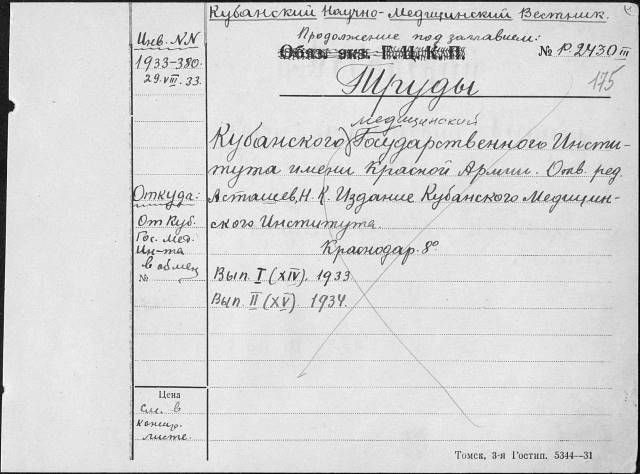 Кубанский Научно-Медицинский Вестник.
Продолжение под заглавием:
Инв. NN
Обяз. экз. Г. Ц. К. П.
№ Р-2430 III
1933-380.
29.VIII.33.
175
Труды
медицинский
Кубанского Государственного Инсти-
тута имени Красной Армии. Отв. ред.
Откуда:
Асташев, Н. К. Издание Кубанского Медицин-
От Куб.
ского Института.
Гос. Мед.
Ин-та
Краснодар. 8°
в обмен
№
Вып. I (XIV). 1933.
Вып. II (XV) 1934.
Цена
См. в
листе.
Томск, 3-я Гостип. 5344—31